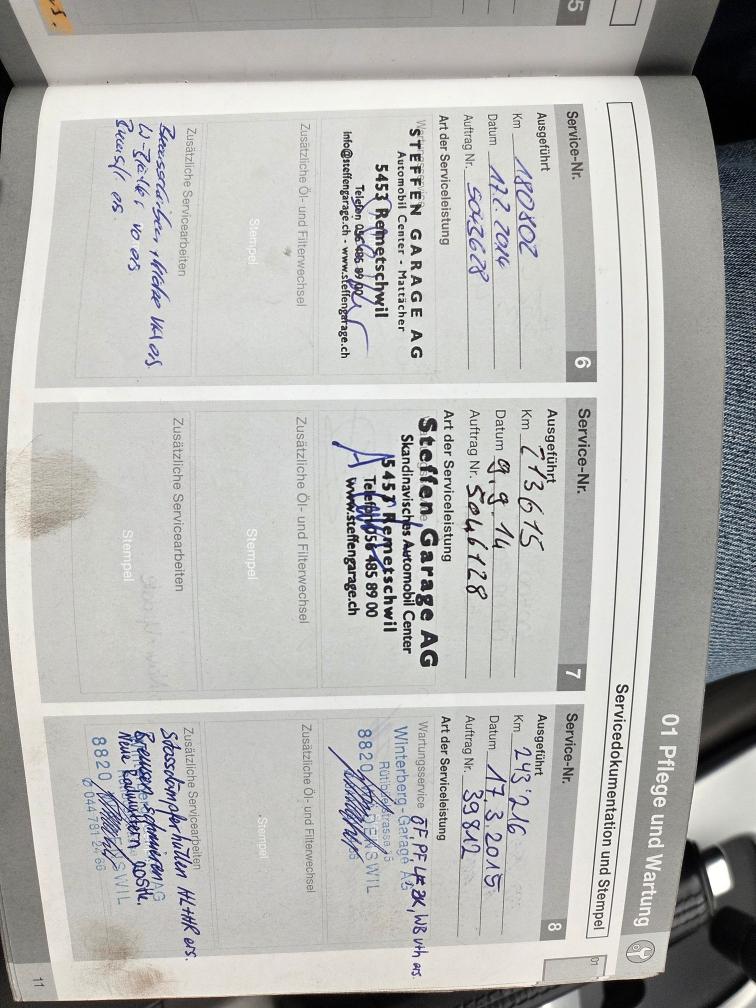 5
01 Pflege und Wartung
Servicedokumentation und Stempel
01
Service-Nr. 6
Ausgeführt
Km 180802
Datum 17.2.2014
Auftrag Nr. 5043628
Art der Serviceleistung
Wartungsservice
STEFFEN GARAGE AG
Automobil Center - Mattächer
5453 Remetschwil
Telefon 056 485 89 00
info@steffengarage.ch - www.steffengarage.ch
Zusätzliche Öl- und Filterwechsel
Stempel
Zusätzliche Servicearbeiten
Service-Nr. 7
Ausgeführt
Km 213615
Datum 9.9.14
Auftrag Nr. 5046128
Art der Serviceleistung
Steffen Garage AG
Skandinavisches Automobil Center
5453 Remetschwil
Telefon 056 485 89 00
www.steffengarage.ch
Zusätzliche Öl- und Filterwechsel
Stempel
Zusätzliche Servicearbeiten
Stempel
Service-Nr. 8
Ausgeführt
Km 243'216
Datum 17.3.2015
Auftrag Nr. 39842
Art der Serviceleistung
Wartungsservice ÖF, PF, LF,
Winterberg-Garage AG
8820 WÄDENSWIL
Zusätzliche Öl- und Filterwechsel
Stempel
Zusätzliche Servicearbeiten
Stossdämpferhüllen HL+HR ers.
Bremsen schmieren
Neue
8820
044 781 24 66
11